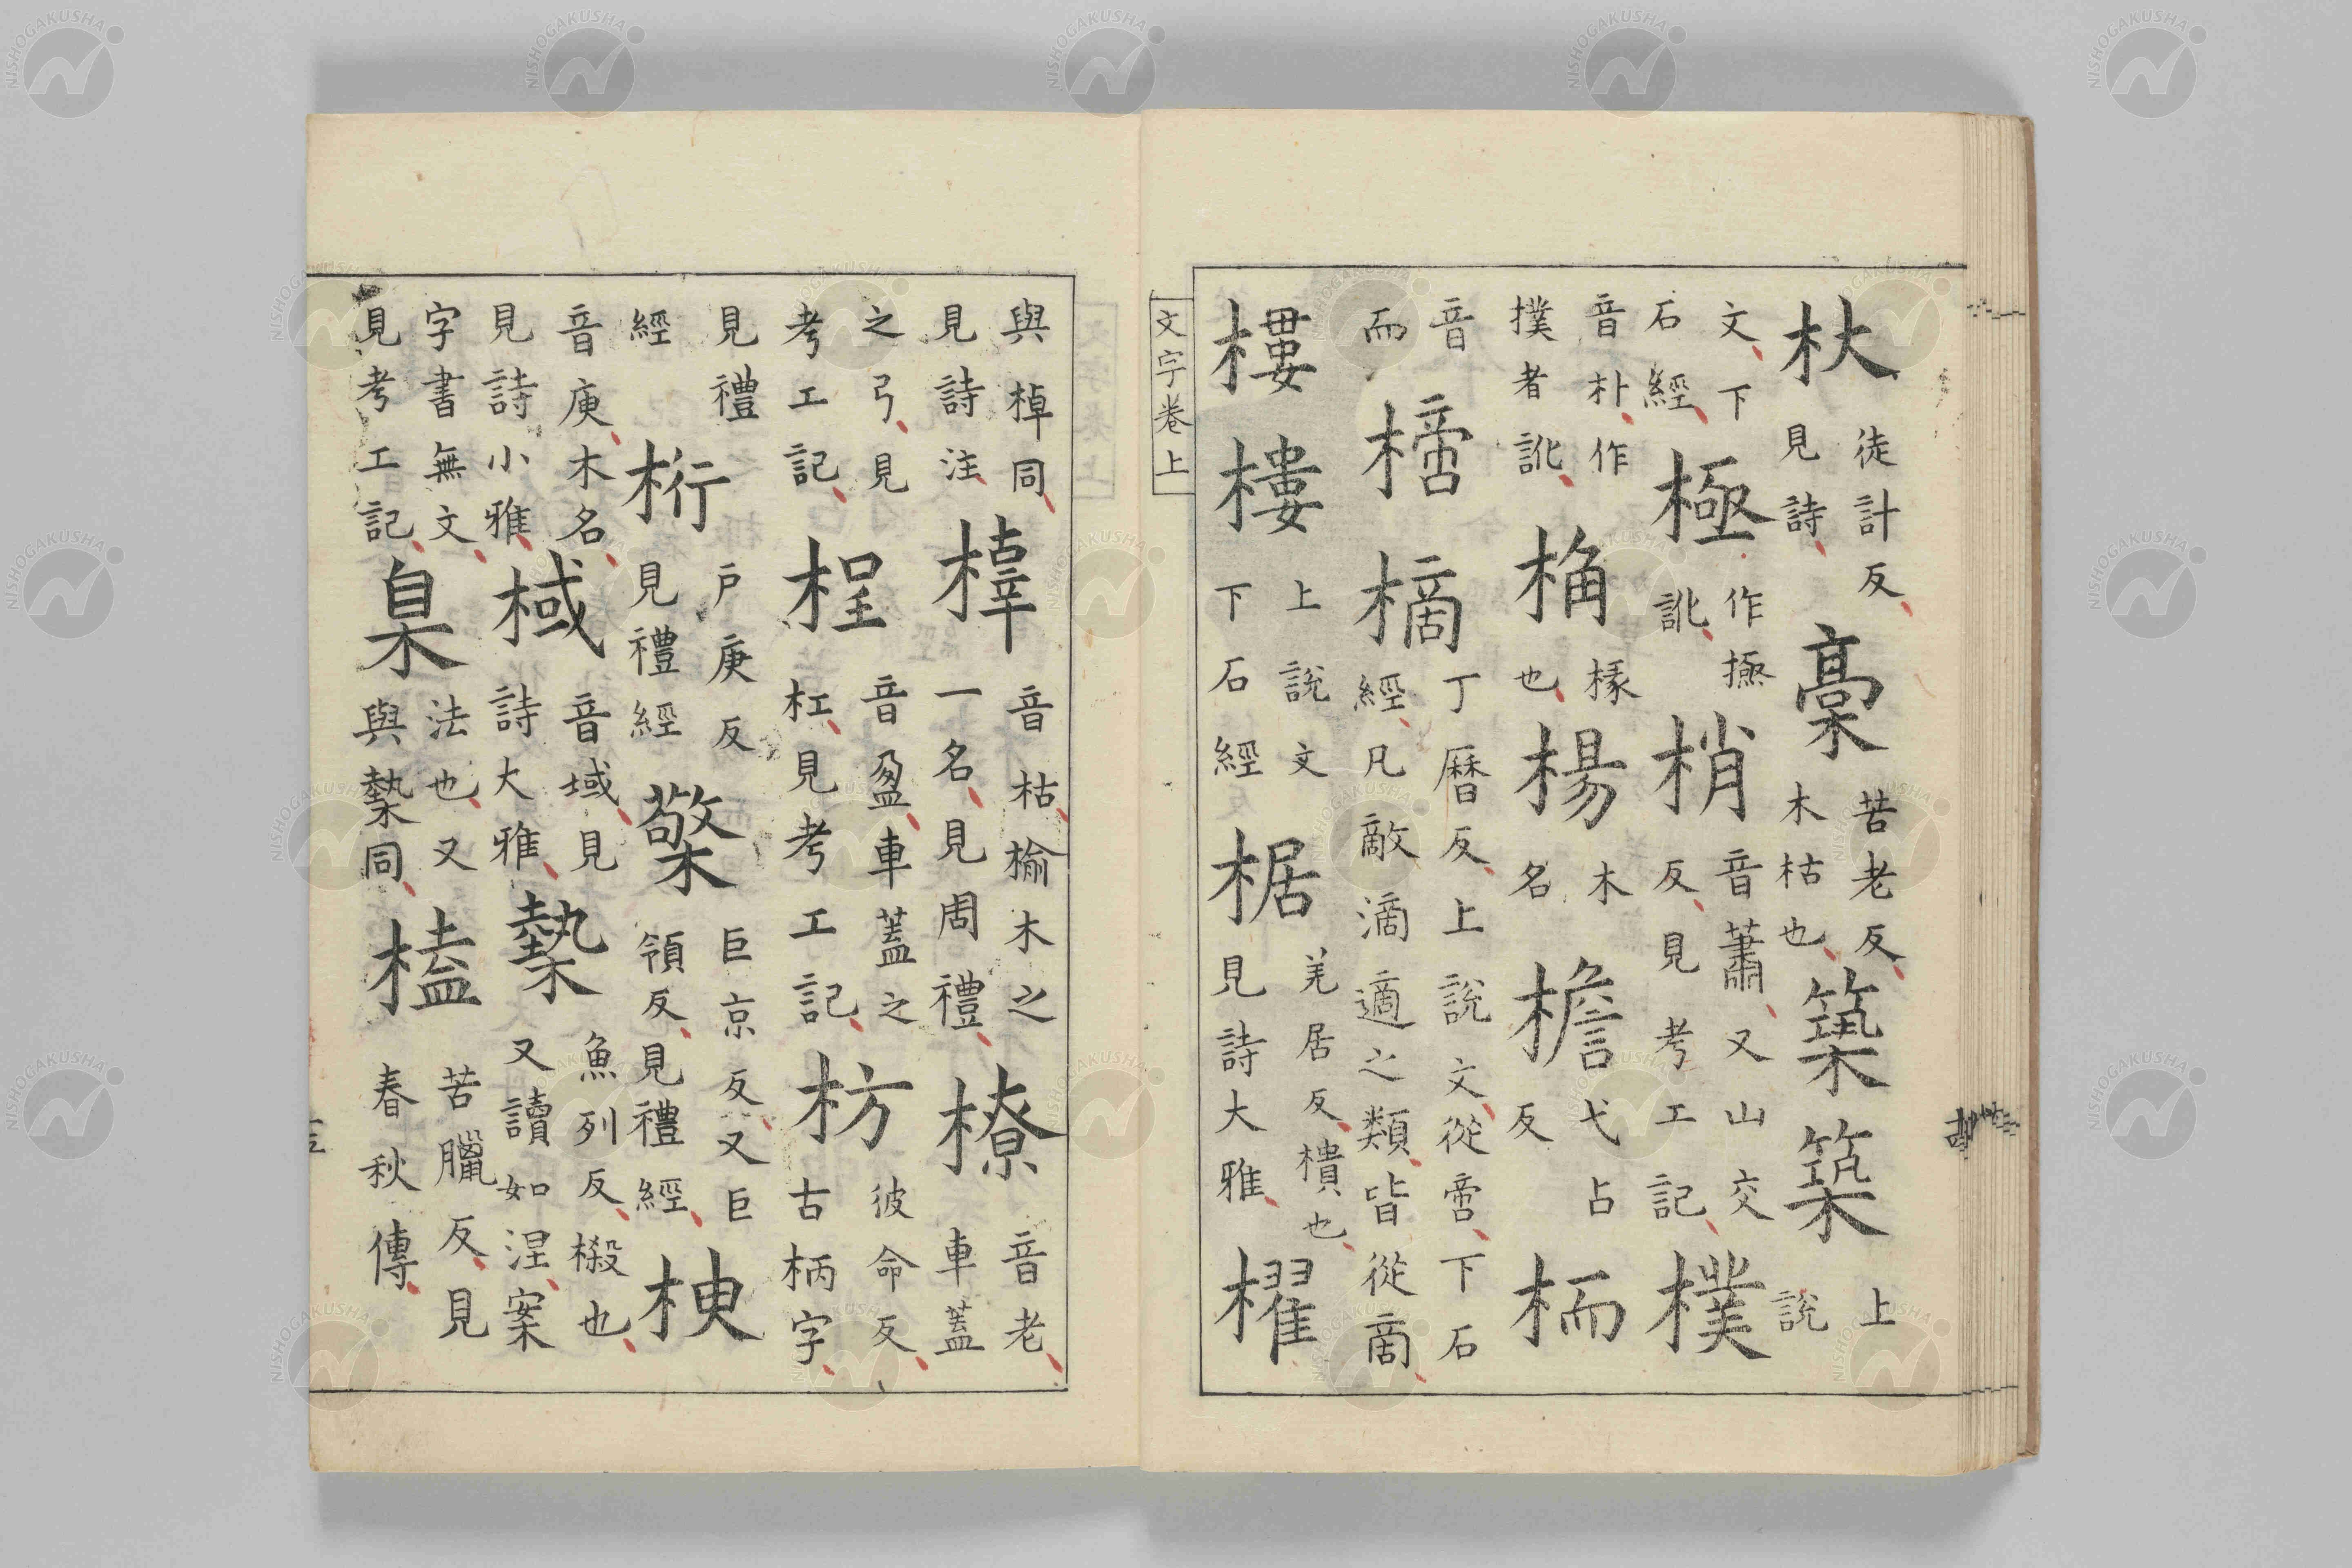 杕徒計反見詩槀苦老反木枯也築築上說
文下石經極作㨌訛梢音蕭又山交反見考工記樸
音朴作撲者訛桷椽也楊木名檐弋占反栭
音而樀樀丁曆反上說文從啻下石經凡敵滴適之類皆從啇
樓樓上說文下石經椐羌居反樻也見詩大雅櫂
文字卷上
與棹同見詩注橭音枯榆木之一名見周禮橑音老車蓋
之弓見考工記桯音盈車蓋之杠見考工記枋彼命反古柄字
見禮經桁戶庚反見禮經檠巨京反又巨領反見禮經楰
音庾木名見詩小雅棫音域見詩大雅槷魚列反樧也又讀如涅案
字書無文見考工記臬法也又與槷同榼苦臘反見春秋傳